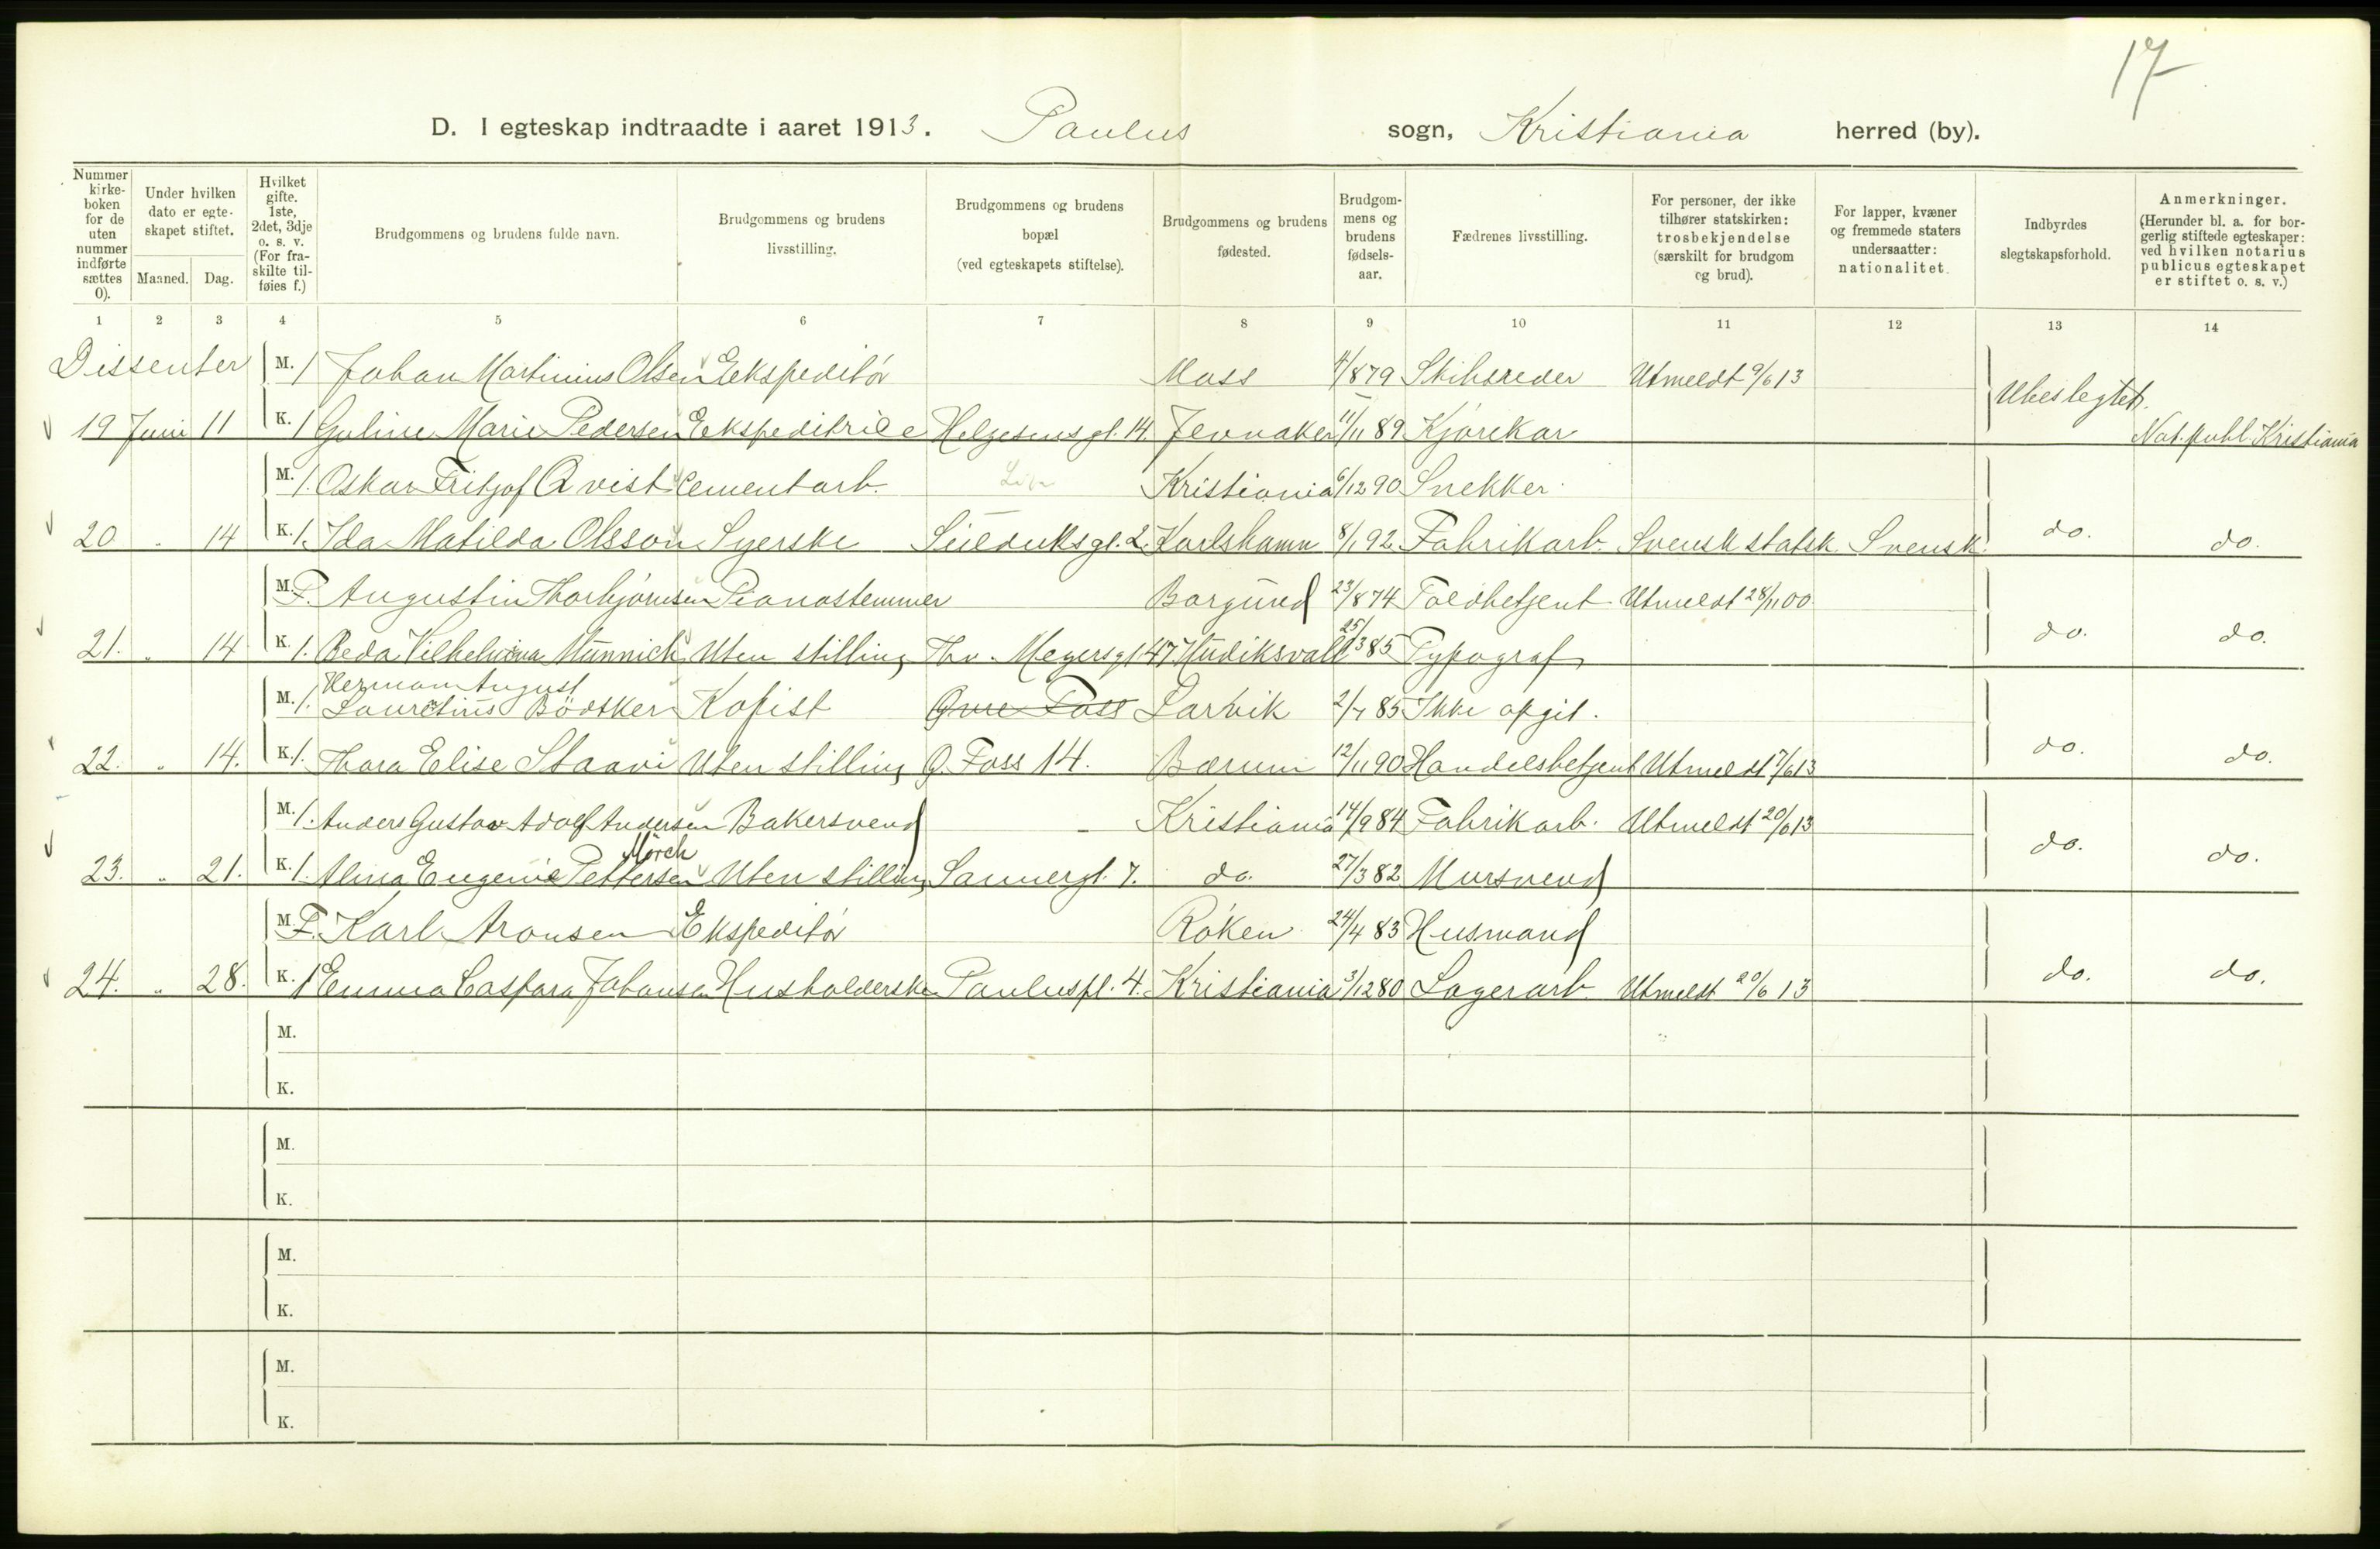 17
D. I egteskap indtraadte i aaret 1913. Paulus sogn, Kristiania herred (by).
Nummer kirke-boken for de uten nummer indførte sættes 0).
Under hvilken dato er egte-skapet stiftet.
Maaned. Dag.
Hvilket gifte. 1ste, 2det, 3dje o. s. v. (For fra-skilte til-føies f.)
Brudgommens og brudens fulde navn.
Brudgommens og brudens livsstilling.
Brudgommens og brudens bopæl (ved egteskapets stiftelse).
Brudgommens og brudens fødested.
Brudgom-mens og brudens fødsels-aar.
Fædrenes livsstilling.
For personer, der ikke tilhører statskirken: trosbekjendelse (særskilt for brudgom og brud).
For lapper, kvæner og fremmede staters undersaatter: nationalitet.
Indbyrdes slegtskapsforhold.
Anmerkninger. (Herunder bl. a. for bor-gerlig stiftede egteskaper: ved hvilken notarius publicus egteskapet er stiftet o. s. v.)
1 2 3 4 5 6 7 8 9 10 11 12 13 14
Dissenter M. 1 Johan Martinius Olsen Ekspeditör Moss 4/8 79 Skibsreder Utmeldt 9/6 13 Ubeslegtet.
19 Juni 11 K. 1 Guline Marie Pedersen Ekspeditrice Helgesensgt. 14. Jevnaker 11/11 89 Kjörekar Not. publ. Kristiania
M. 1. Oskar Fritjof Qvist Cementarb. Kristiania 6/12 90 Snekker.
20 " 14 K. 1. Ida Matilda Olsson Syerske Seilduksgt. 2. Karlshamn 8/1 92. Fabrikarb. Svensk statsk. Svensk. do. do.
M. F. Augustin Thorbjörnsen Pianostemmer Borgund 23/8 74 Toldbetjent Utmeldt 28/11 00.
21. " 14 K. 1. Beda Vilhelmina Münnich Uten stilling Thv. Meyersgt 47 Hudiksvall 25/3 85 Typograf do. do.
Herman August
M. 1. Lauretius Bödtker Kopist Øvre Foss Larvik 2/7 85 Ikke opgit.
22. " 14. K. 1. Thora Elise Staavi Uten stilling Ø. Foss 14. Bærum 12/11 90 Handelsbetjent Utmeldt 17/6 13 do. do.
M. 1. Anders Gustav Adolf Andersen Bakersvend - Kristiania 14/9 84 Fabrikarb. Utmeldt 20/6 13
Mörch
23. " 21. K. 1. Alma Eugenie Pettersen Uten stilling Sannergt. 7. do. 27/3 82 Mursvend do. do.
M. F. Karl Aronsen Ekspeditör Röken 24/4 83 Husmand
24. " 28. K. 1 Emma Caspara Johansen Husholderske Pauluspl. 4. Kristiania 3/12 80 Lagerarb. Utmeldt 20/6 13 do. do.
M.
K.
M.
K.
M.
K.
M.
K.